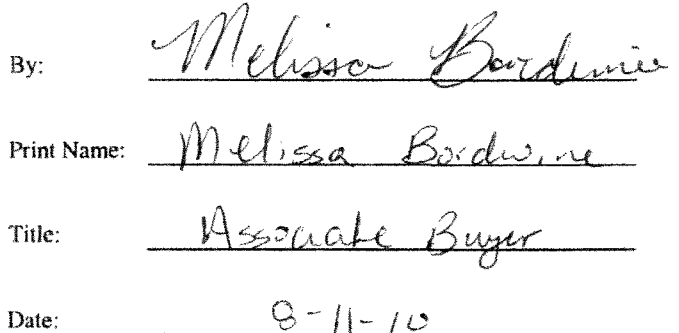 By: Melissa Bordwine
Print Name: Melissa Bordwine
Title: Associate Buyer
Date: 8-11-10